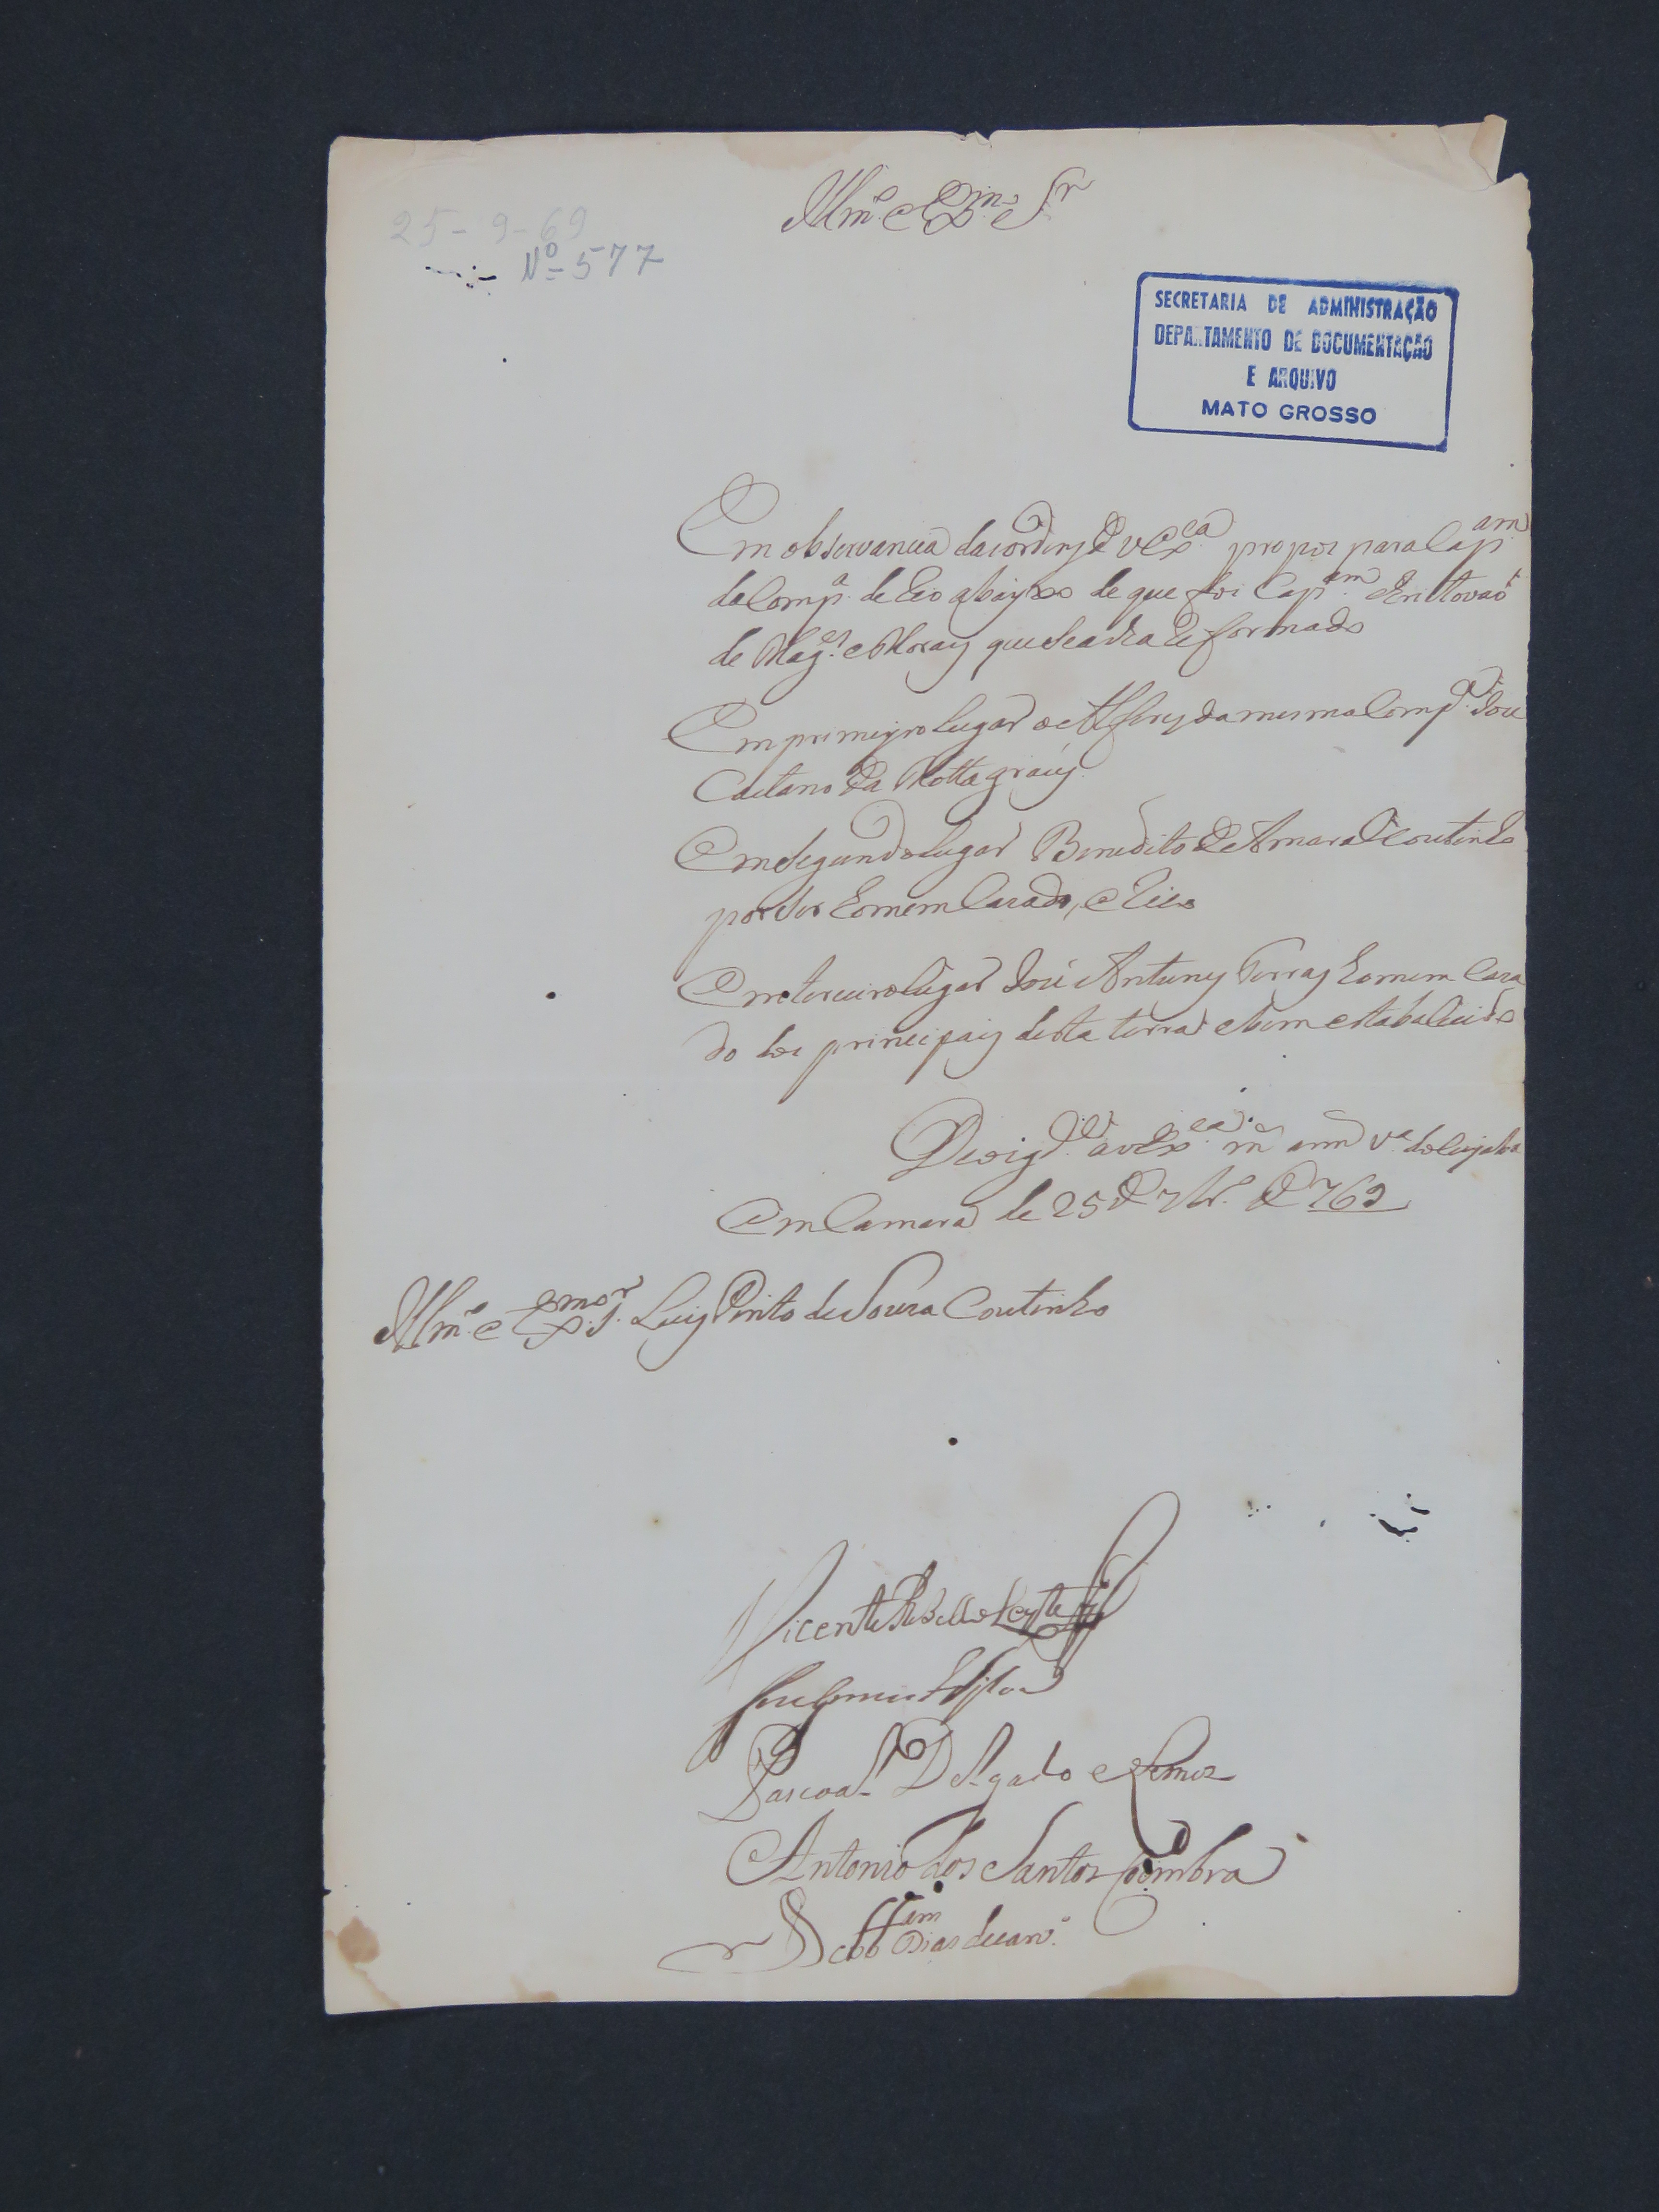 Illm.º e Exm.º Sr
25-9-69
Nº-577
SECRETARIA DE ADMINISTRAÇÃO
DEPARTAMENTO DE DOCUMENTAÇÃO
E ARQUIVO
MATO GROSSO
Em observancia das ordens de V Ex.ca propos para Cap.am
da Comp.ª de Rio abayxo de que foi Cap.am Cristovaõ
de Mag.es e Moray que se acha Reformado
Em primeyro lugar o Alferes da mesma Comp.ª José
Caetano da Motta
Em segundo lugar Benedito de Amaral Coutinho
por ser homem Cazado, e Rico
Em terceiro lugar José Antuny Ferraz homem Caza
do dos principais desta terra e bem estabalecido
D.s g.de a V Ex.ca m ann V.ª do Cuyaba
Em Camara de 25 de 7br.º de 769
Illm.º e Exmo Sr. Luiz Pinto de Souza Coutinho
Vicente Rebello Leyte
Pascoal Delgado e Lemos
Antonio dos Santos Coimbra
Sebb.am Dias